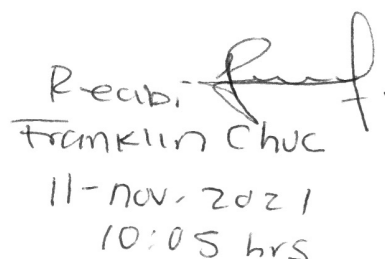 Recibi
Franklin Chuc
11-nov. 2021
10:05 hrs